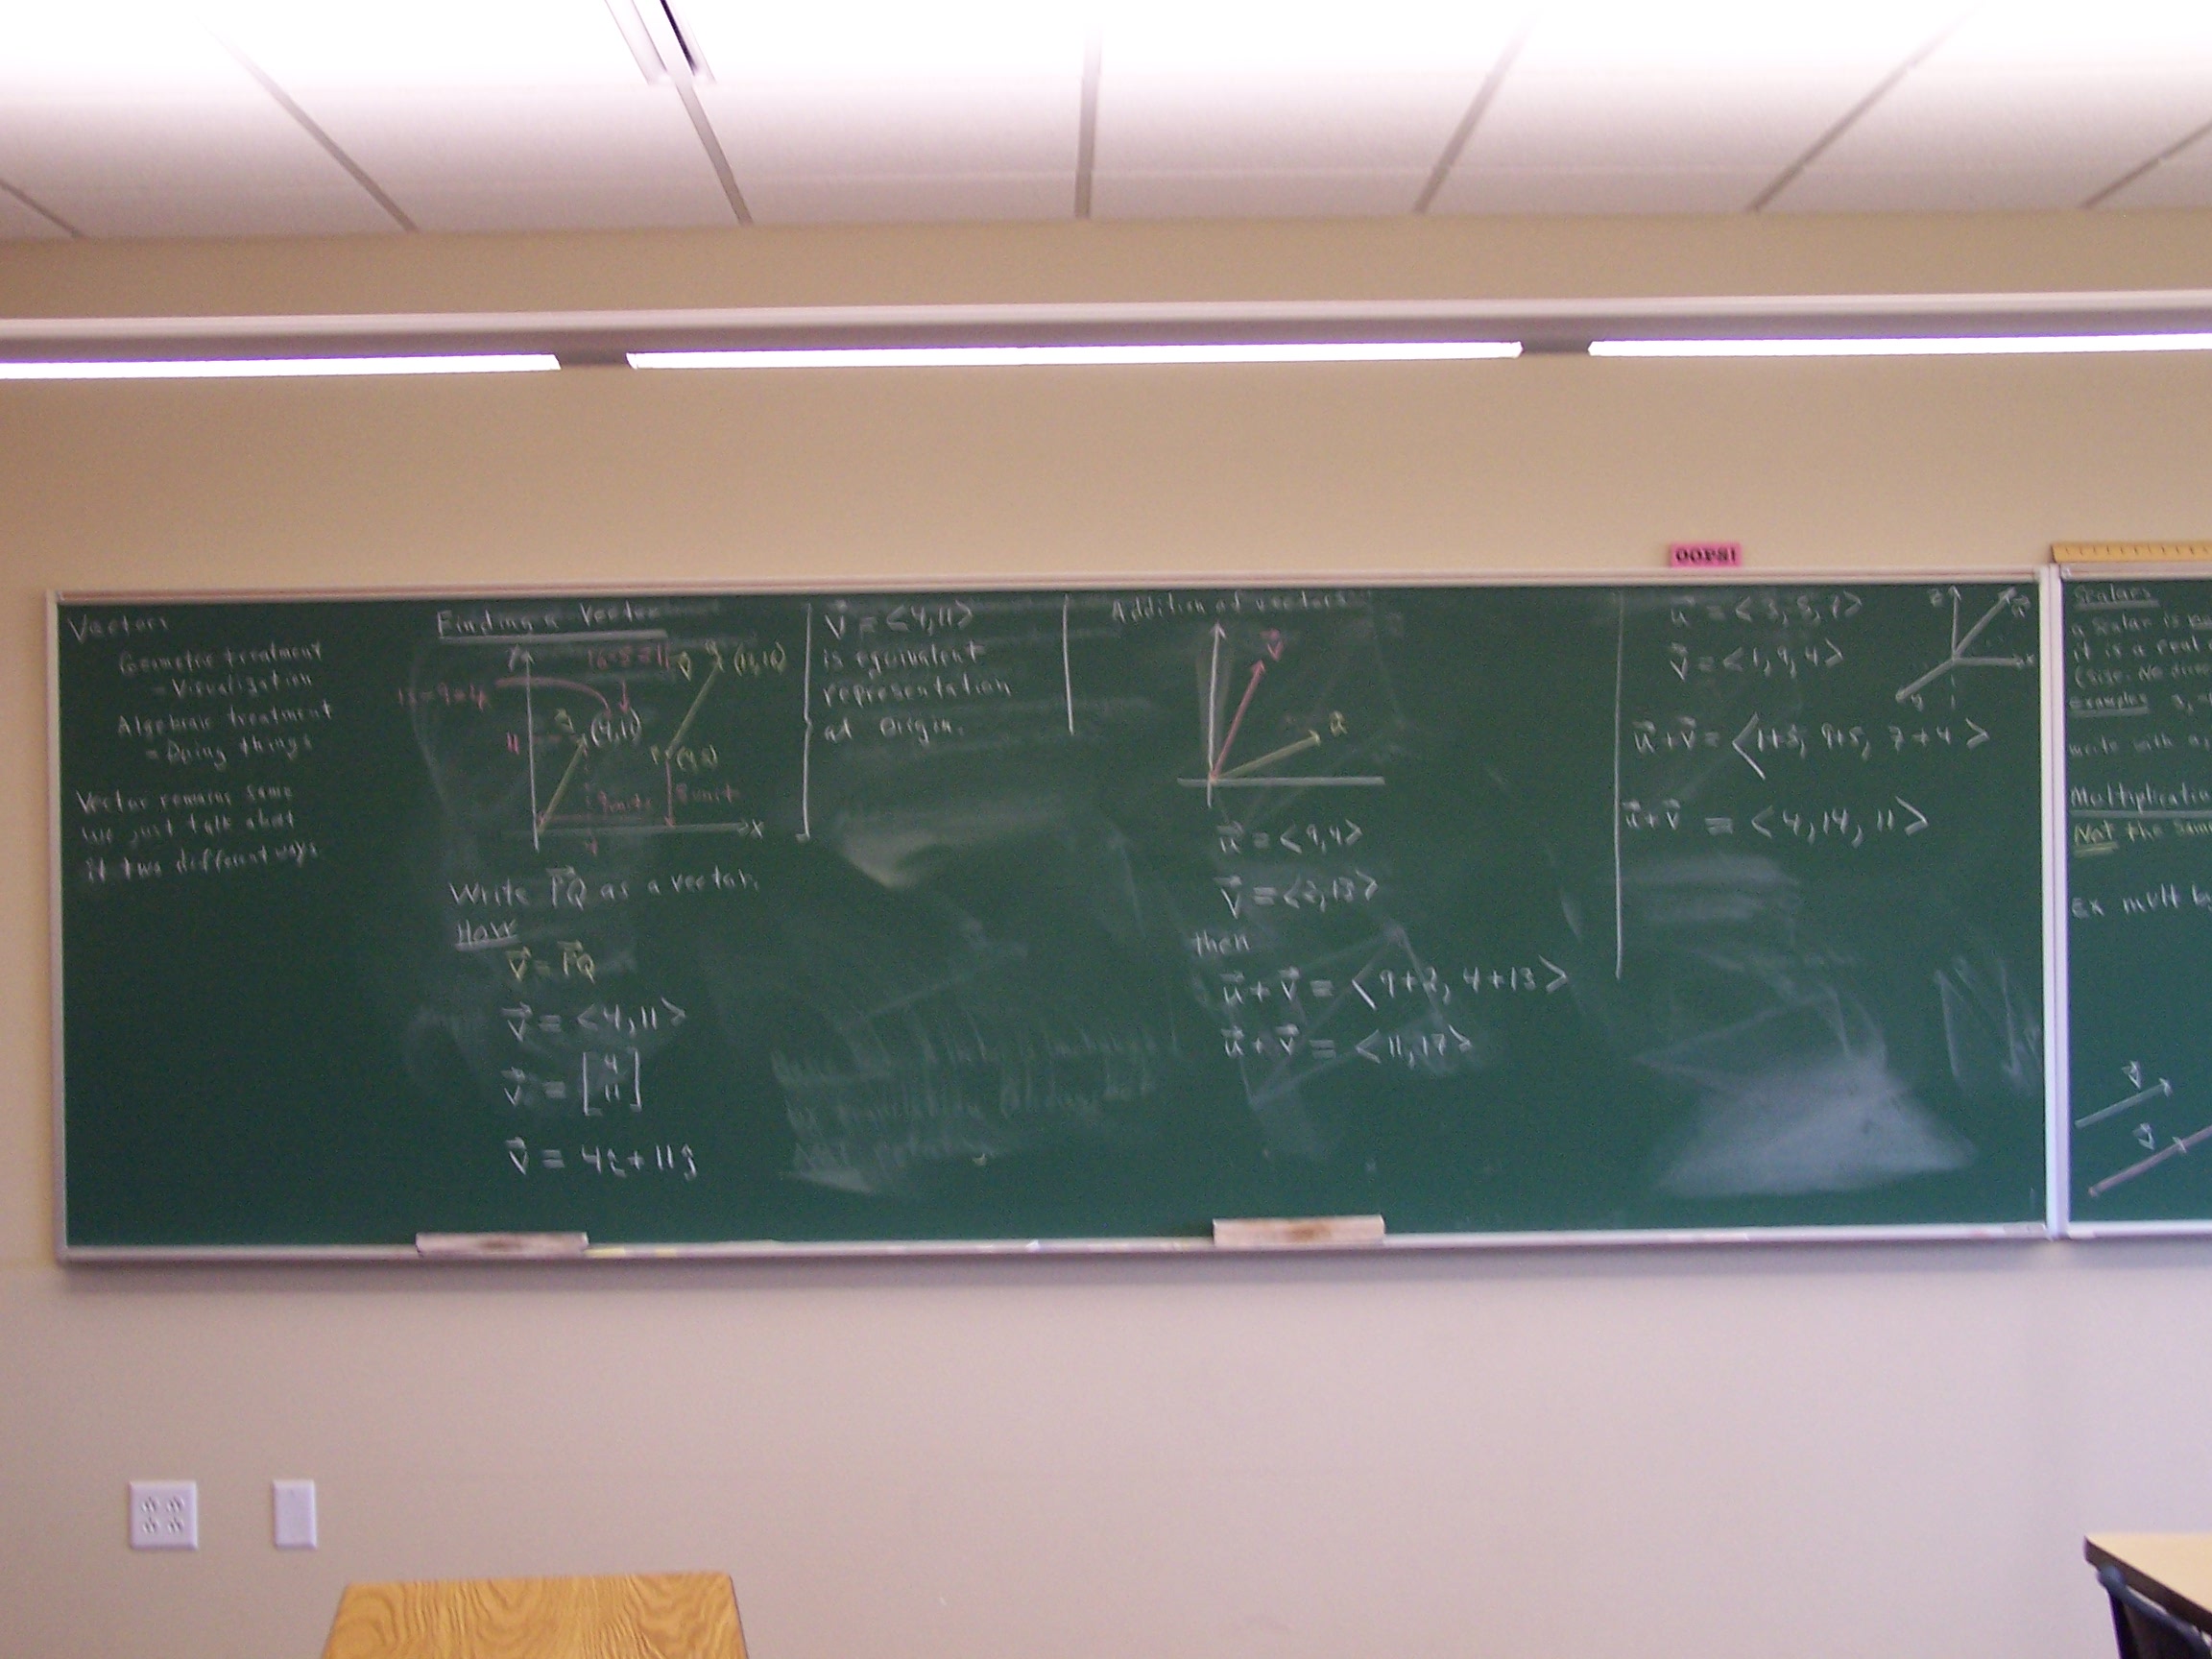 OOPS!
Vectors
Geometric treatment
- Visualization
Algebraic treatment
- Doing things
Vector remains same
we just talk about
it two different ways
Finding a Vector
y
16-5=11
v⃗ Q (13,16)
13-9=4
(4,11)
11
P (9,5)
9 units
x
4
Write P⃗Q as a vector.
How
v⃗ = P⃗Q
v⃗ = <4,11>
v⃗ = [4
11]
v⃗ = 4i + 11j
v⃗ = <4,11>
is equivalent
representation
at Origin.
Addition of vectors
v⃗
u⃗
u⃗ = <9,4>
v⃗ = <2,13>
then
u⃗ + v⃗ = <9+2, 4+13>
u⃗ + v⃗ = <11,17>
u⃗ = <3,5,7>
v⃗ = <1,9,4>
z
u⃗
x
y
u⃗+v⃗ = <1+3, 9+5, 7+4>
u⃗+v⃗ = <4,14,11>
Scalars
a scalar is
it is a real
(size. No
Examples 3,
write with a
Multiplicatio
Not the sam
Ex mult by
v⃗
v⃗